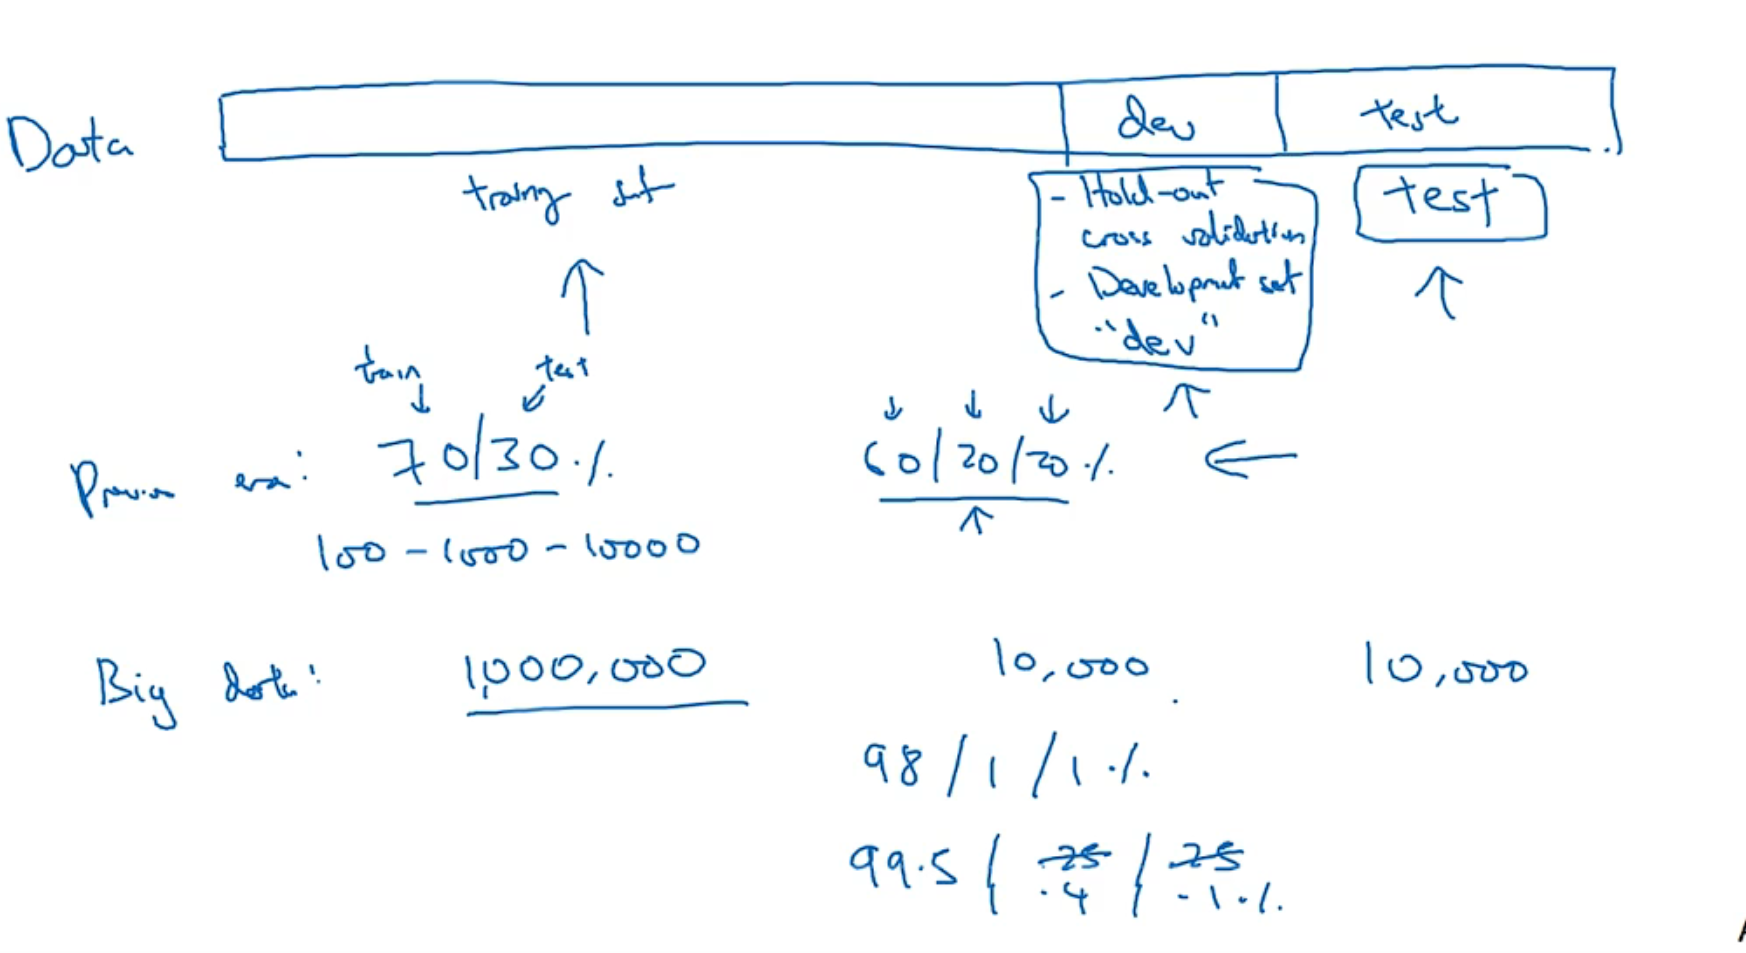 Data
dev
test
training set
- Hold-out
cross validation
- Development set
"dev"
test
train
test
Previous era:
70/30 %
60/20/20 %
100 - 1000 - 10000
Big data:
1,000,000
10,000
10,000
98/1/1 %
99.5 / .25 / .25
.4 .1 %